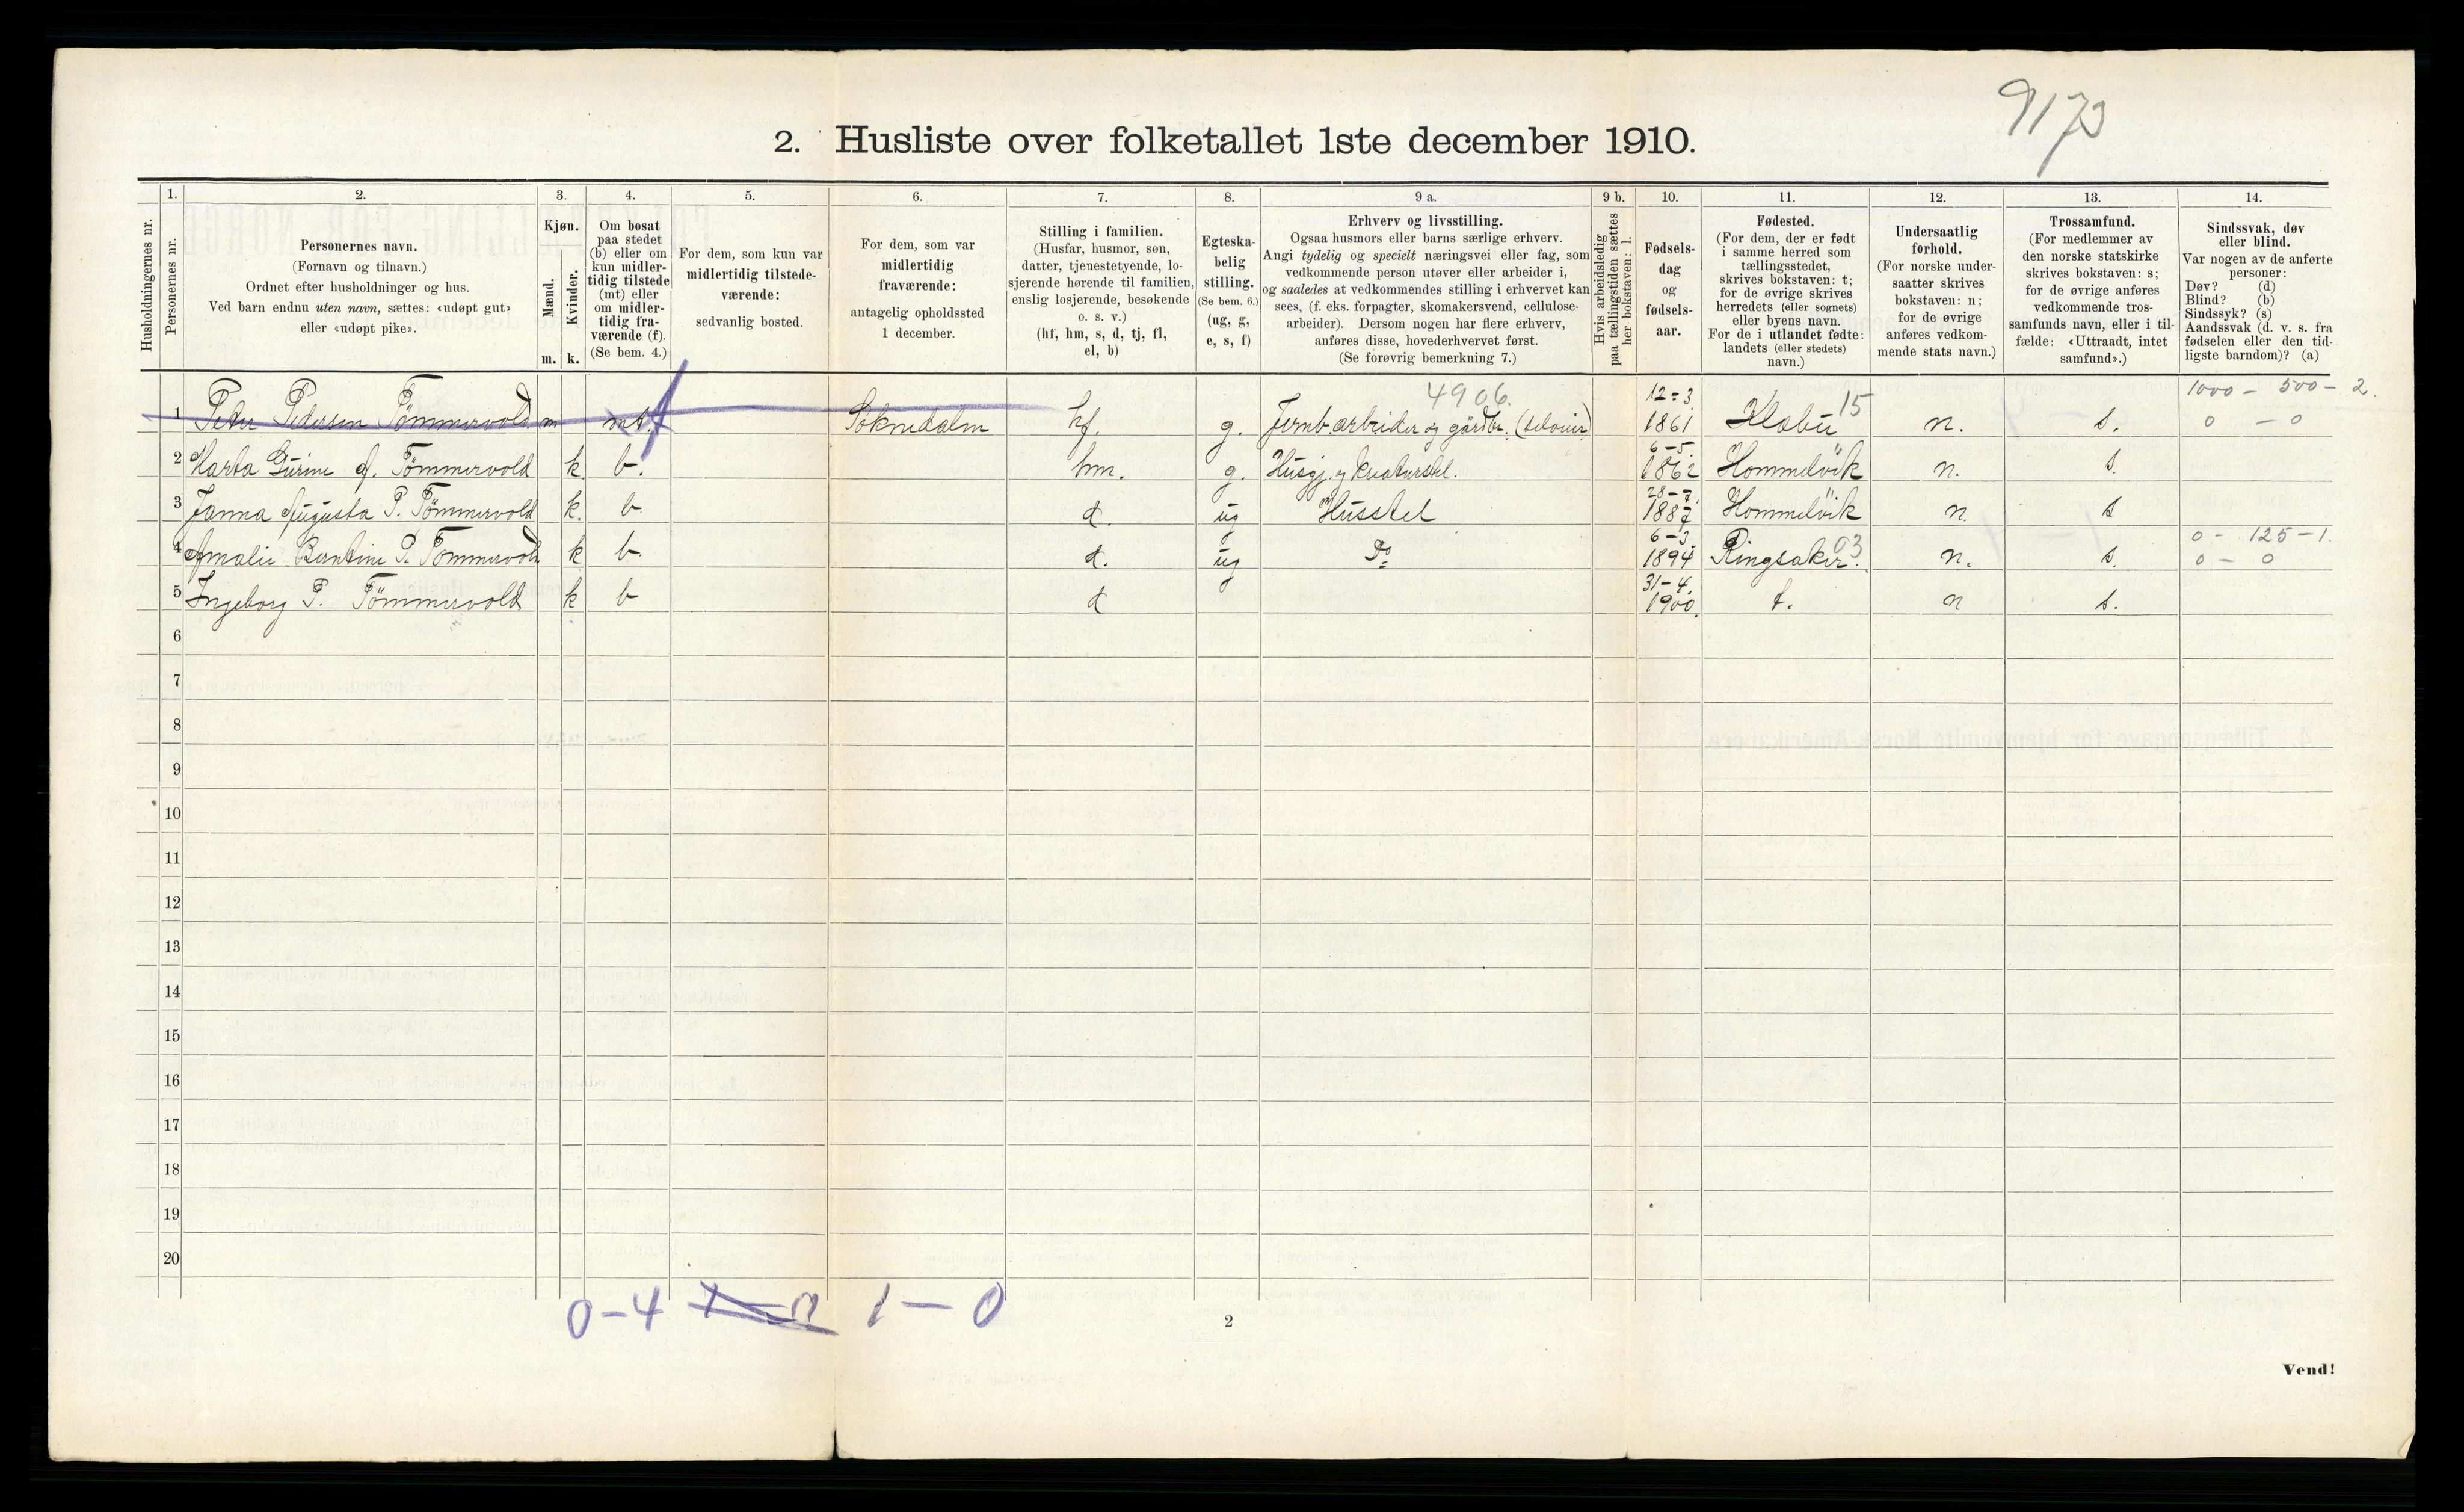 9173
2. Husliste over folketallet 1ste december 1910.
Husholdningernes nr.
1.
Personernes nr.
2.
Personernes navn.
(Fornavn og tilnavn.)
Ordnet efter husholdninger og hus.
Ved barn endnu uten navn, sættes: «udøpt gut»
eller «udøpt pike».
3.
Kjøn.
Mænd.
Kvinder.
m. k.
4.
Om bosat
paa stedet
(b) eller om
kun midler-
tidig tilstede
(mt) eller
om midler-
tidig fra-
værende (f).
(Se bem. 4.)
5.
For dem, som kun var
midlertidig tilstede-
værende:
sedvanlig bosted.
6.
For dem, som var
midlertidig
fraværende:
antagelig opholdssted
1 december.
7.
Stilling i familien.
(Husfar, husmor, søn,
datter, tjenestetyende, lo-
sjerende hørende til familien,
enslig losjerende, besøkende
o. s. v.)
(hf, hm, s, d, tj, fl,
el, b)
8.
Egteska-
belig
stilling.
(Se bem. 6.)
(ug, g,
e, s, f)
9 a.
Erhverv og livsstilling.
Ogsaa husmors eller barns særlige erhverv.
Angi tydelig og specielt næringsvei eller fag, som
vedkommende person utøver eller arbeider i,
og saaledes at vedkommendes stilling i erhvervet kan
sees, (f. eks. forpagter, skomakersvend, cellulose-
arbeider). Dersom nogen har flere erhverv,
anføres disse, hovederhvervet først.
(Se forøvrig bemerkning 7.)
9 b.
Hvis arbeidsledig
paa tællingstiden sættes
her bokstaven: l.
10.
Fødsels-
dag
og
fødsels-
aar.
11.
Fødested.
(For dem, der er født
i samme herred som
tællingsstedet,
skrives bokstaven: t;
for de øvrige skrives
herredets (eller sognets)
eller byens navn.
For de i utlandet fødte:
landets (eller stedets)
navn.)
12.
Undersaatlig
forhold.
(For norske under-
saatter skrives
bokstaven: n;
for de øvrige
anføres vedkom-
mende stats navn.)
13.
Trossamfund.
(For medlemmer av
den norske statskirke
skrives bokstaven: s;
for de øvrige anføres
vedkommende tros-
samfunds navn, eller i til-
fælde: «Uttraadt, intet
samfund».)
14.
Sindssvak, døv
eller blind.
Var nogen av de anførte
personer:
Døv? (d)
Blind? (b)
Sindssyk? (s)
Aandssvak (d. v. s. fra
fødselen eller den tid-
ligste barndom)? (a)
4906. 12-3 15 1000 - 500 - 2.
1 Peder Pedersen Tömmervold m mt. f Soknedalen hf. g. Jernb.arbeider og gårdbr. (selveier) 1861 Klæbu n. s. 0 - 0
6-5.
2 Marta Gurine A. Tömmervold k b. hm. g. Husgj. og kreaturstel. 1862 Hommelvik n. s.
28-7.
3 Janna Augusta P. Tömmervold k. b d. ug Husstel 1887 Hommelvik n. s
6-3. 03 0 - 125 - 1.
4 Amalie Berntine P. Tömmervold k b. d. ug Do 1894 Ringsaker. n. s. 0 - 0
31-4.
5 Ingeborg P. Tömmervold k b d 1900. t. n s.
6
7
8
9
10
11
12
13
14
15
16
17
18
19
20
0-4 1-0
2
Vend!